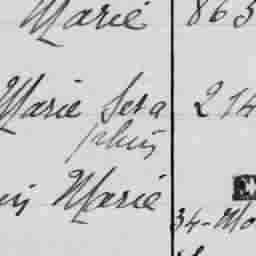 Marie 863
Marie Sera 214
phin
Marie
34-Mo